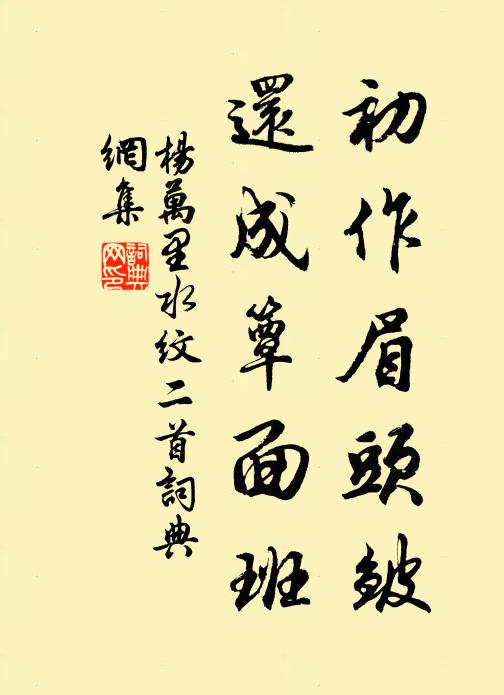 初作眉頭皺
還成簟面班
楊萬里水紋二首詞典
網集
詞典
网印